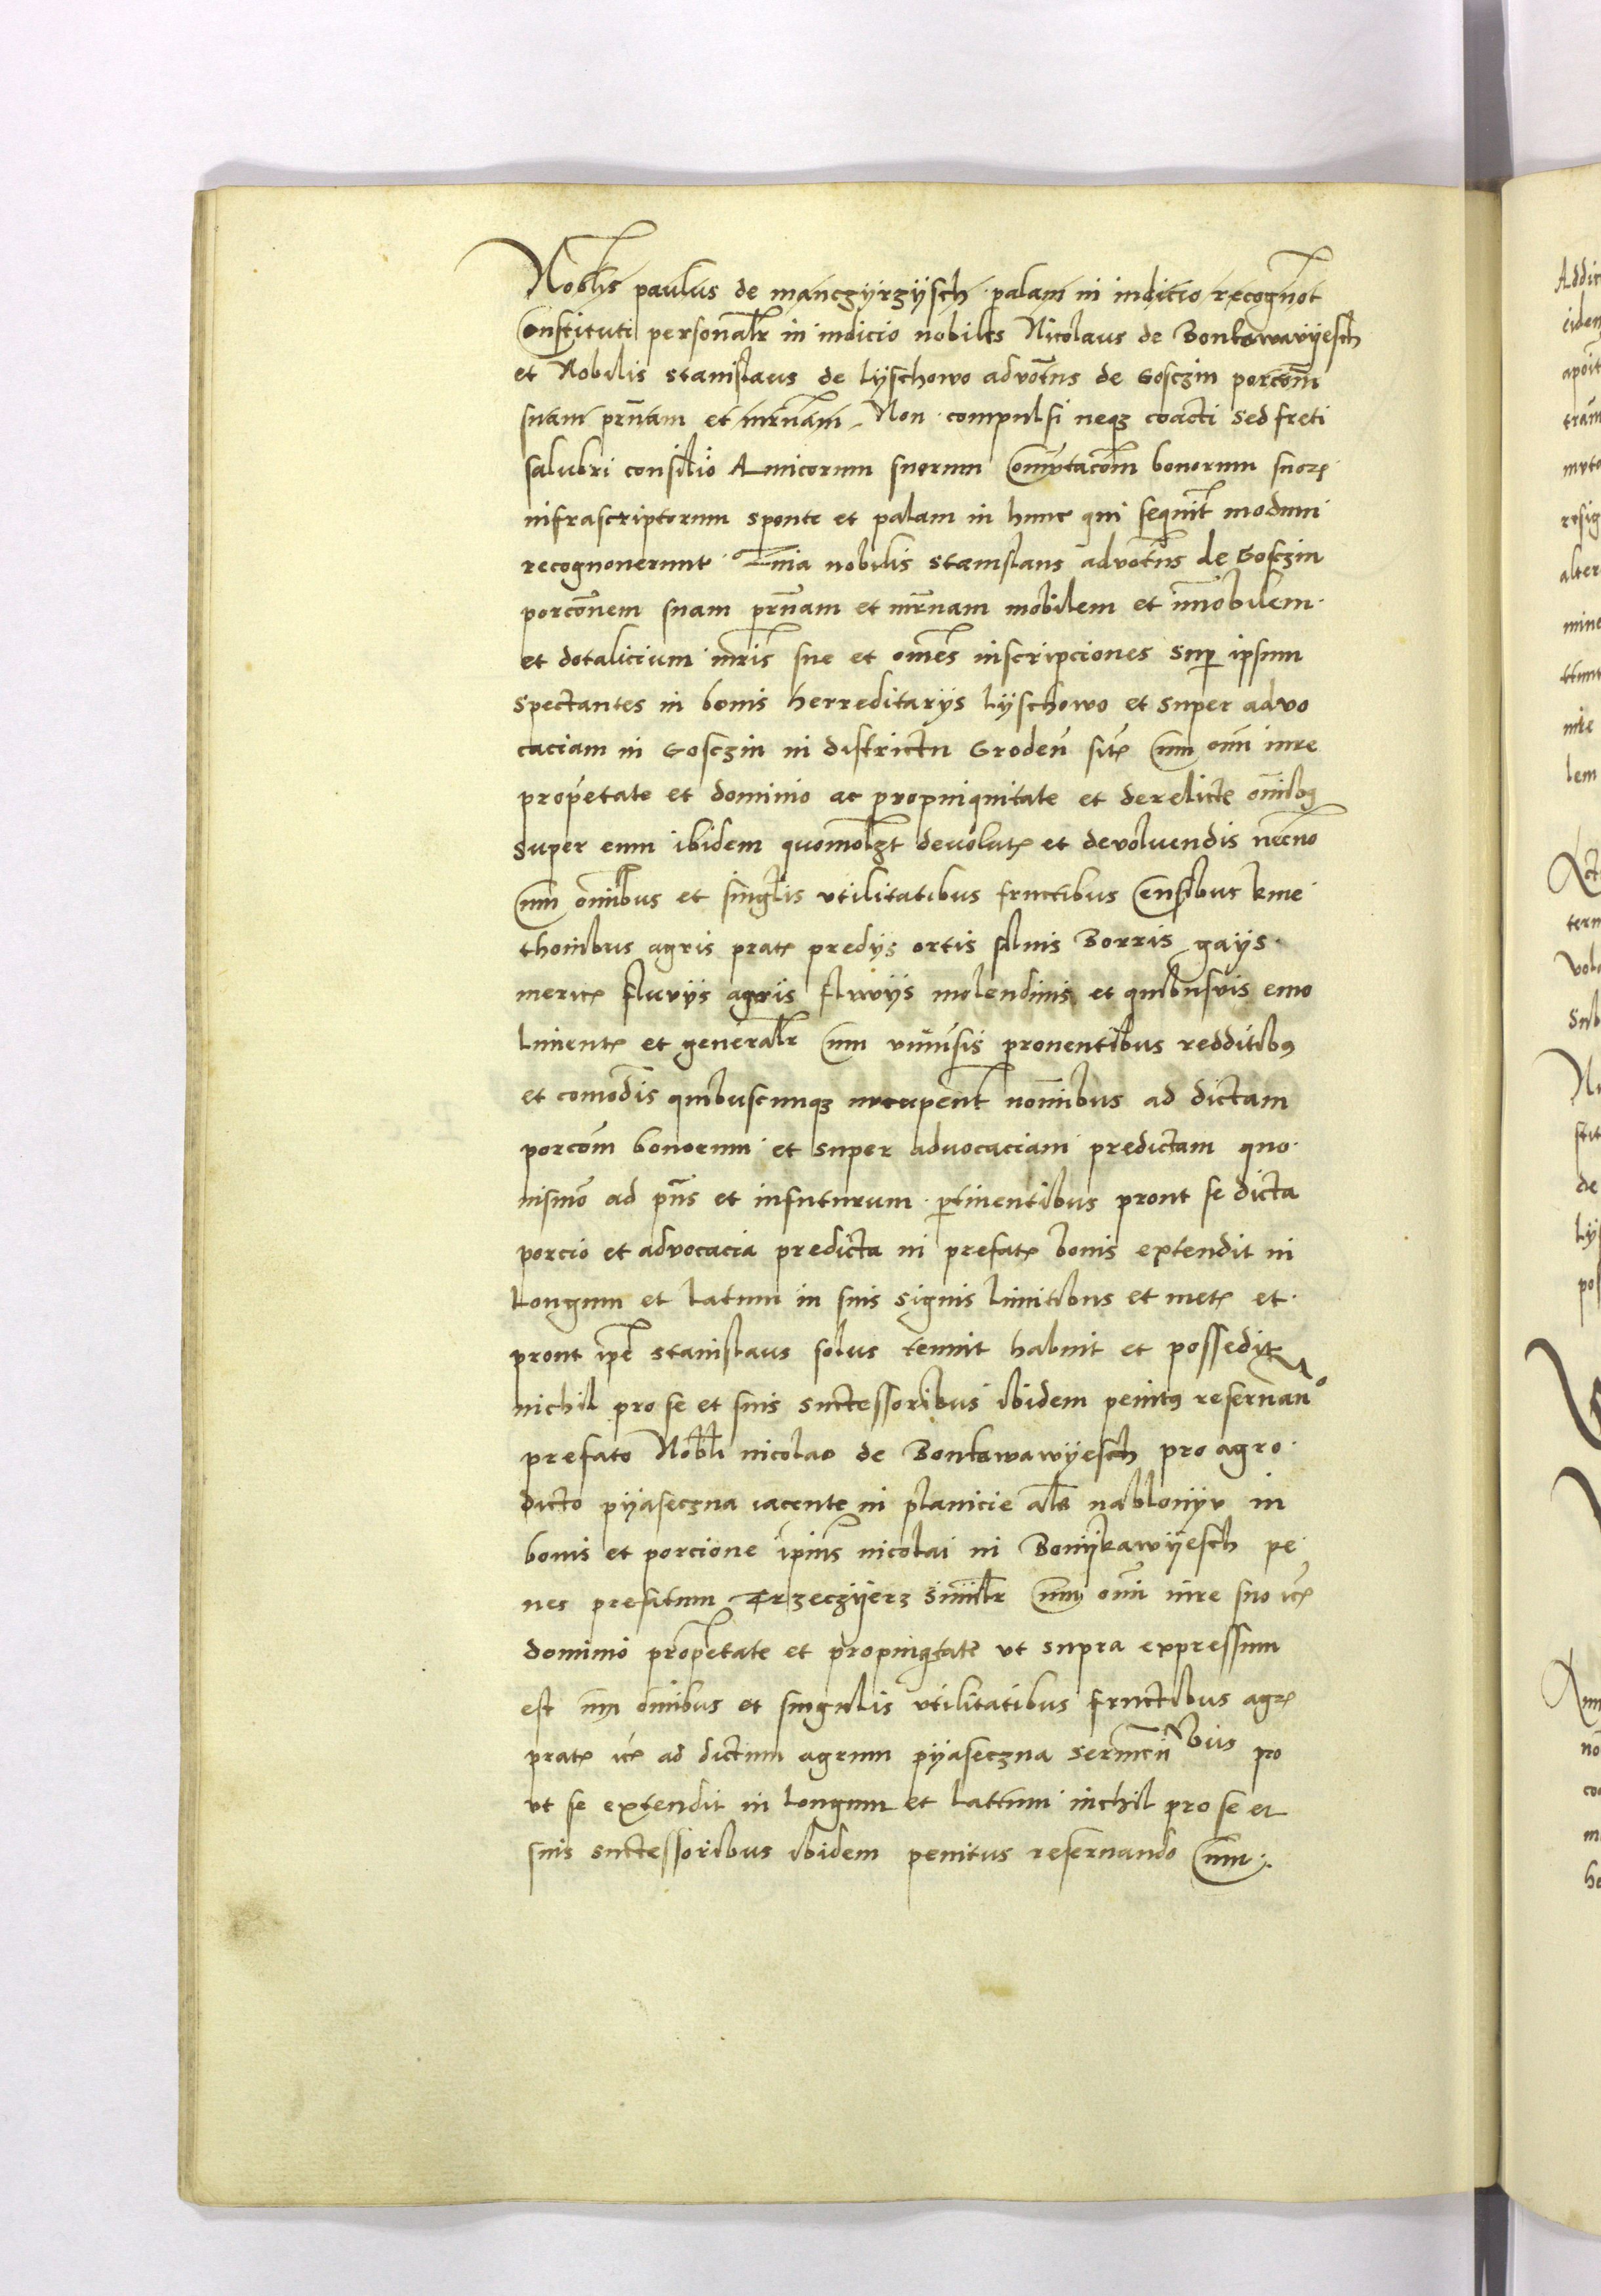 Noblis paulus de manczyrzysch palam in iudicio recognot
Constituti personalr in iudicio nobiles Nicolaus de Bonkawavyesch
et Nobilis Stanislaus de lyschowo advotus de Gosczin porcom
suam prnam et mrnam Non compulsi neqz coacti sed freti
salubri consilio Amicorum suorum Comutacom bonorum suorz
infrascriptorum sponte et palam in hunc qui sequit modum
recognouerunt Quia nobilis Stanislaus advotus de Gosczin
porconem suam prnam et mrnam mobilem et imobilem
et dotalicium mris sue et omes inscripciones sup ipsum
spectantes in bonis herreditarys lyschowo et super advo
caciam in Gosczin in districtu Groden sitz Cum omi iure
propetate et dominio ac propinquitate et derelicte omibq
super eum ibidem quomolzt deuolutz et devoluendis necno
Cum omibus et singlis vtilitatibus fructibus Censibus kme
thonibus agris pratz predys ortis siluis Borris gays
mericz fluvys agris flwys molendinis et quibusvis emo
limentz et generalr Cum vniusis prouentibus redditibq
et comodis quibuscunqz nuupent nomibus ad dictam
porcom bonorum et super advocaciam predictam quo
nismo ad pns et infuturum ptinentibus prout se dicta
porcio et advocacia predicta in prefatz bonis extendit in
Longum et Latum in suis signis limitibus et metz et
prout ipe Stanislaus solus tenuit habuit et possedit
nichil pro se et suis successoribus ibidem penitq reseruano
prefato Nobli nicolao de Bonkawawyesch pro agro
dicto pyaseczna iacente in planicie als nablonyv in
bonis et porcione ipius nicolai in Bonykawyesch pe
nes prefatum Trzeczyerz similr Cum omi iure suo icz
dominio propetate et propinqtate vt supra expressum
est Cum omibus et singulis vtilitatibus fructibus agrz
pratz icz ad dictum agrum pyaseczna sermenbus pro
vt se extendit in Longum et Lattum nichil pro se et
suis successoribus ibidem penitus reseruando Cum